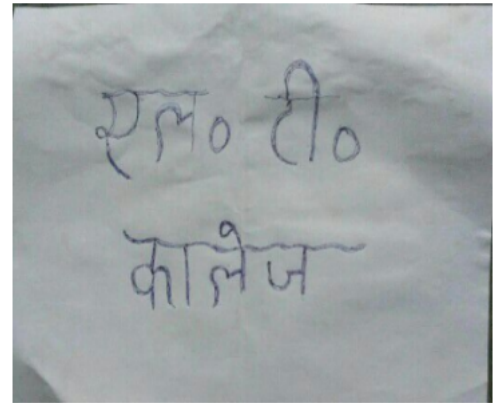 एल० टी०
कालेज